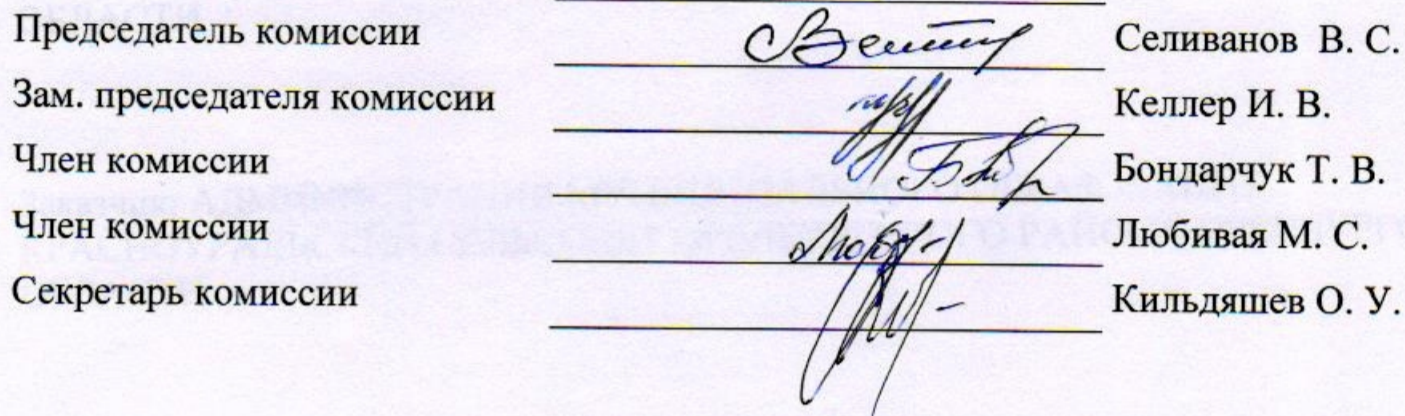 Председатель комиссии Селиванов В. С.
Зам. председателя комиссии Келлер И. В.
Член комиссии Бондарчук Т. В.
Член комиссии Любивая М. С.
Секретарь комиссии Кильдяшев О. У.